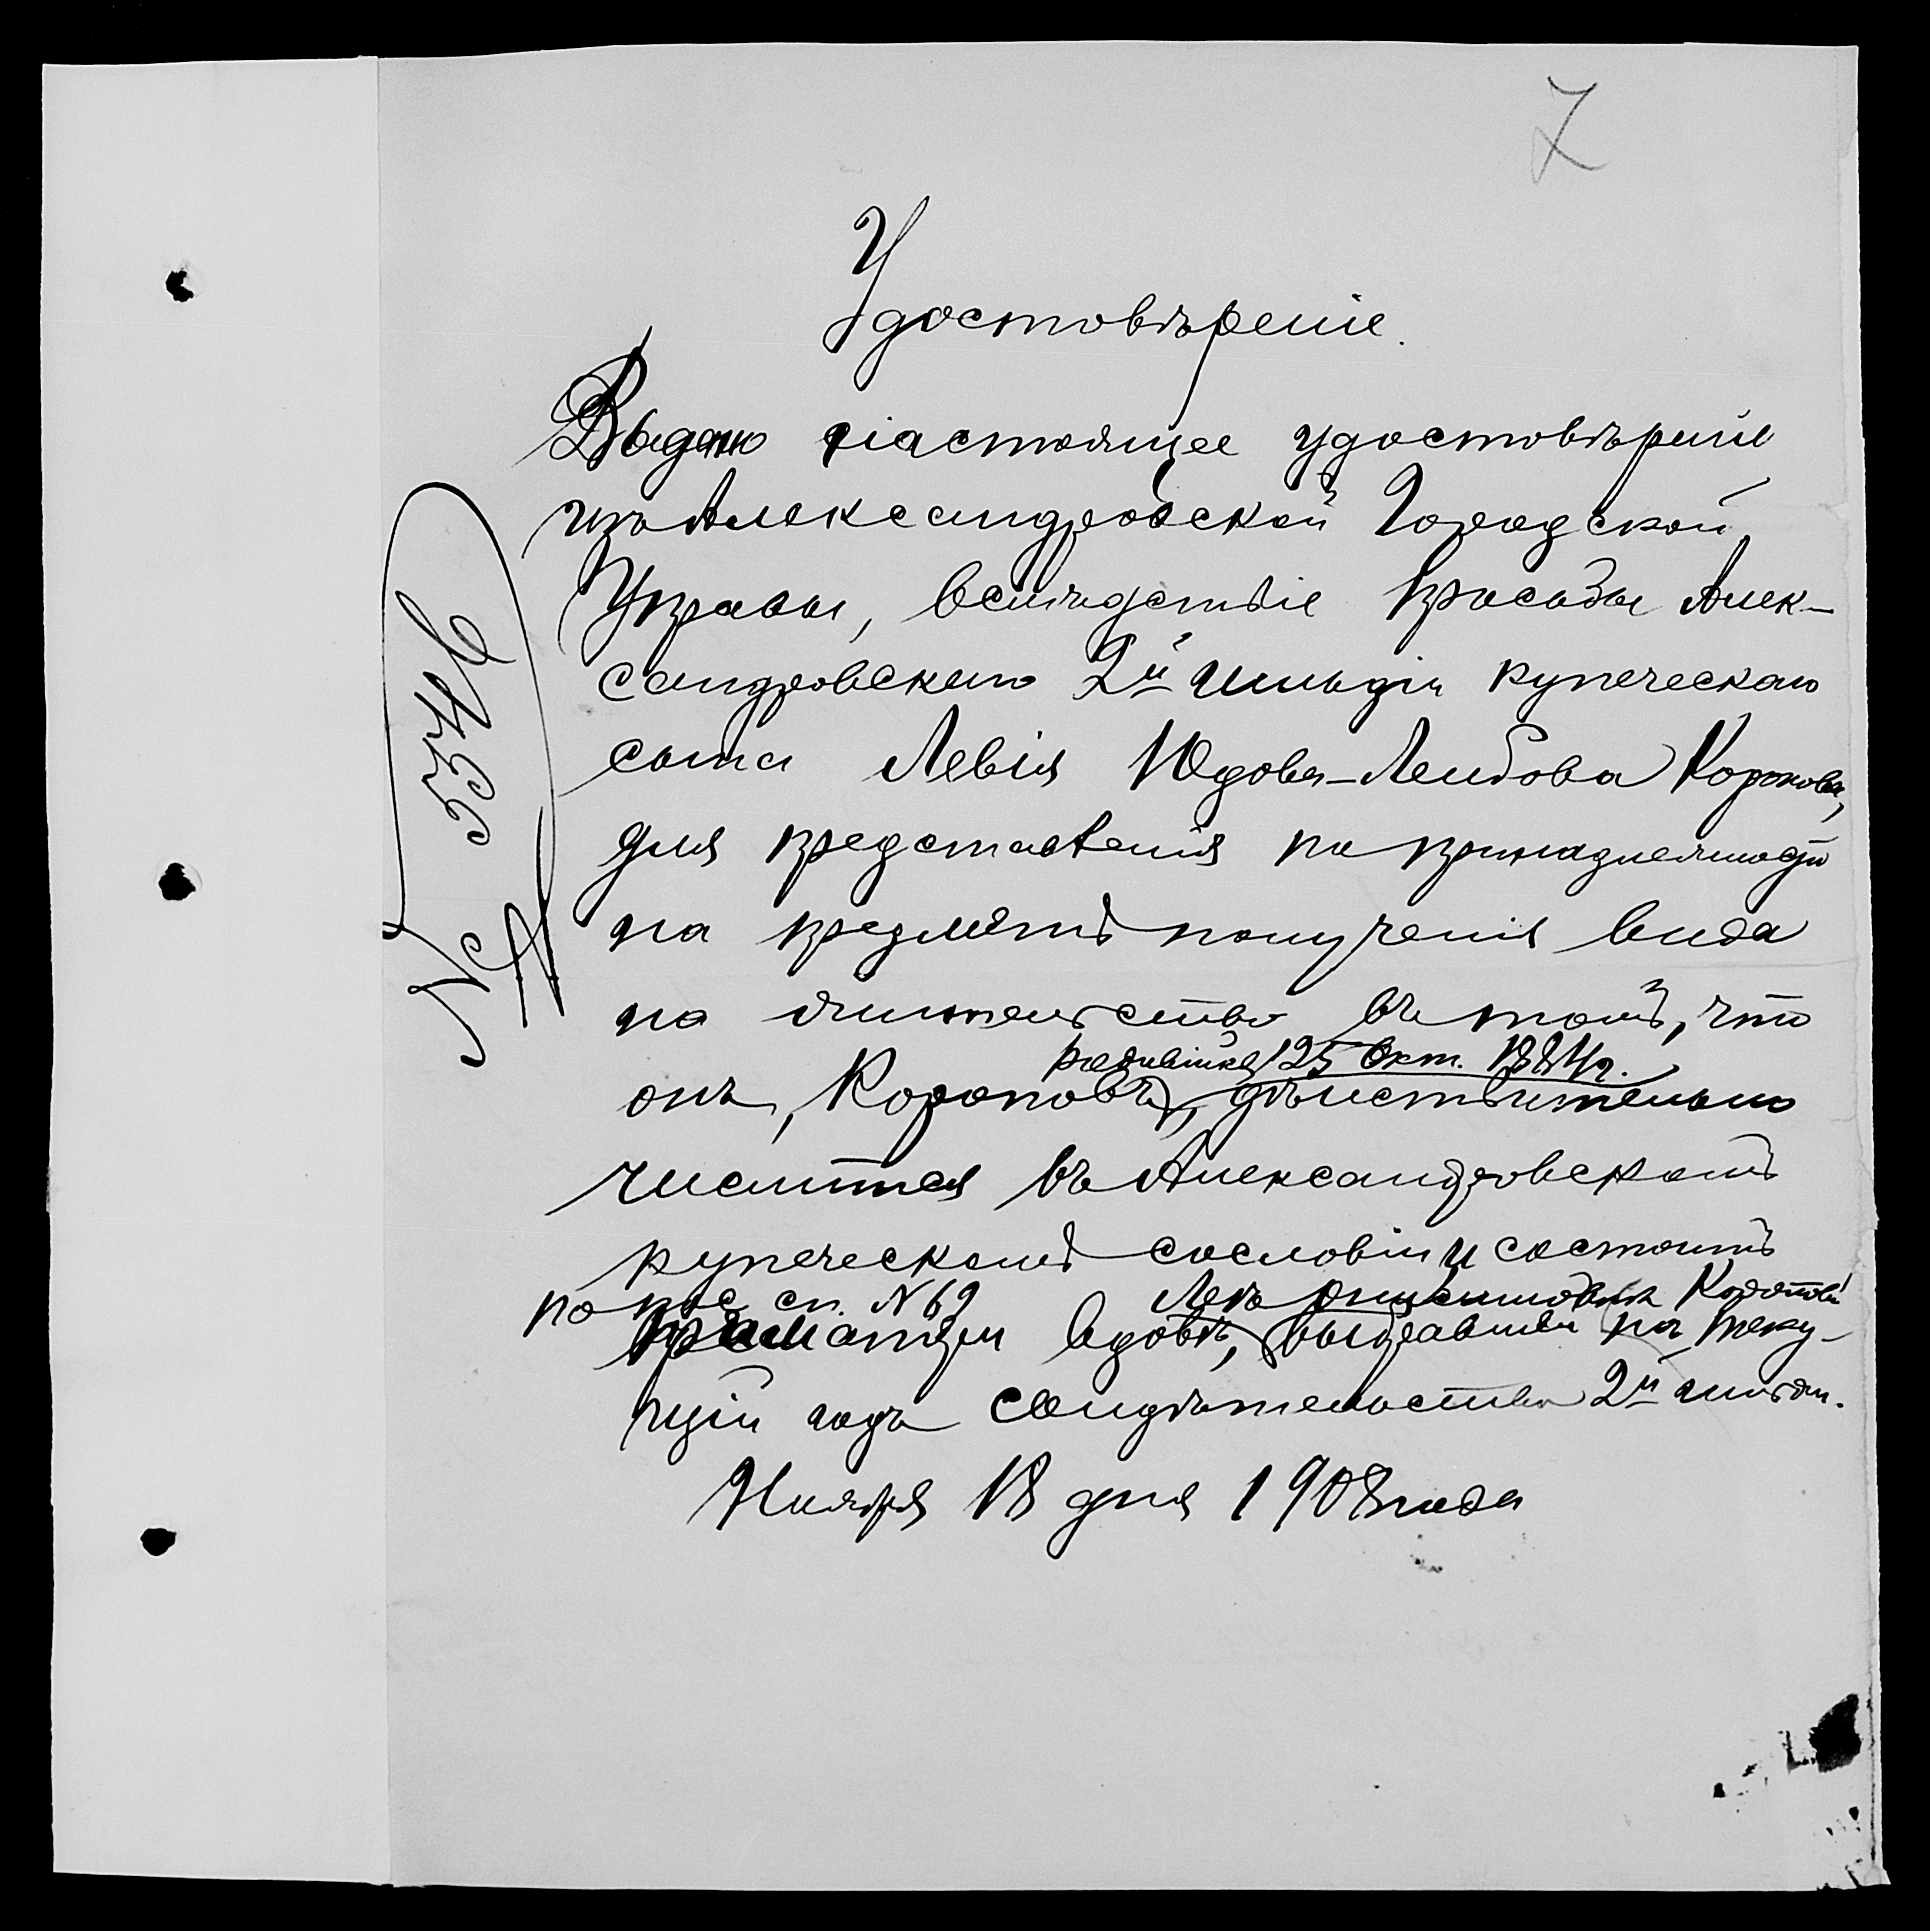 7
Удостовѣреніе.
Выдано настоящее удостовѣреніе
изъ Александровской Городской
Управы, вслѣдствіе просьбы Алек-
сандровскаго 2й гильдіи купеческаго
сына Левія Юдова-Лейбова Коротова,
для представленія по принадлежности
на предметъ полученія вида
на жительство въ томъ, что
родившійся 25 Окт. 1884 г.
онъ, Коротовъ, дѣйствительно
числится въ Александровскомъ
купеческомъ сословіи и состоитъ
по пос. сп. № 69
при матери вдовѣ, Коротовой
выбравшей на теку-
щій годъ свидѣтельство 2й гильдіи.
Ноября 18 дня 1908 года
№